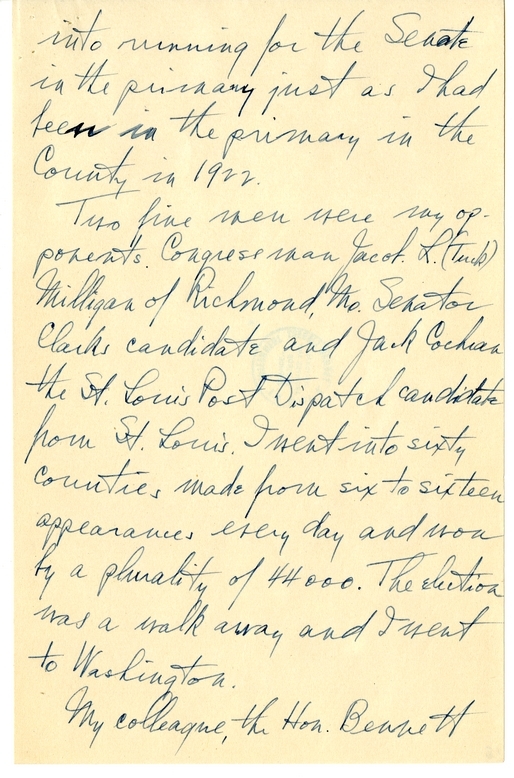 into running for the Senate
in the primary just as I had
been in the primary in the
County in 1922.
Two fine men were my op-
ponents. Congressman Jacob. L. (Tuck)
Milligan of Richmond, Mo. Senator
Clarks candidate and Jack Cochran
the St. Louis Post Dispatch candidate
from St. Louis. I went into sixty
counties made from six to sixteen
appearances every day and won
by a plurality of 44000. The election
was a walk away and I went
to Washington.
My colleague, the Hon. Bennett